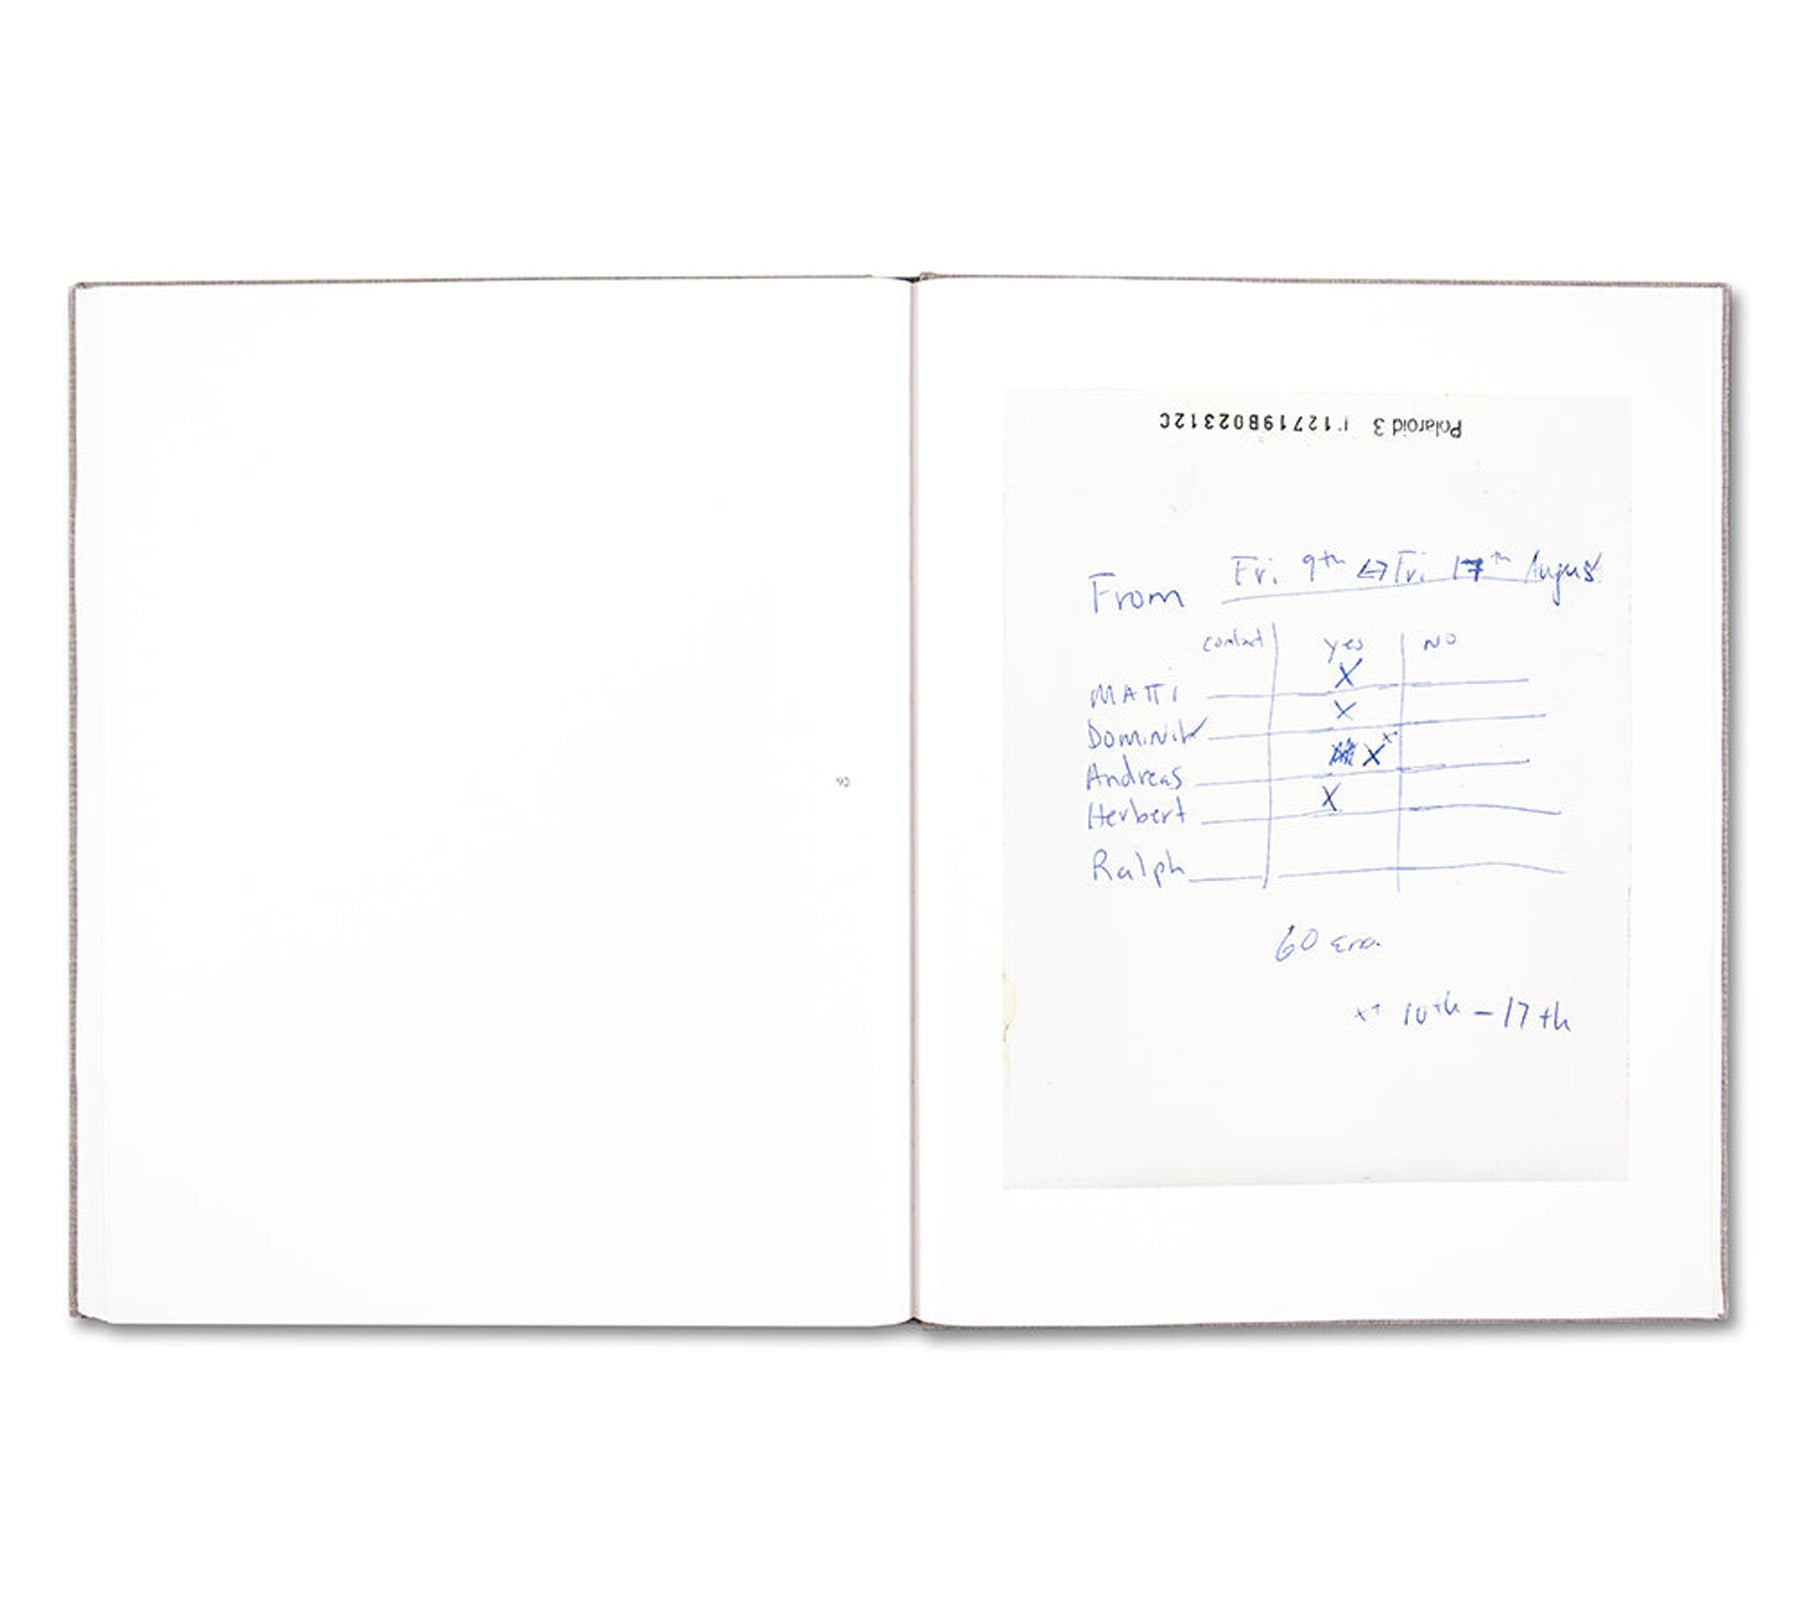 Polaroid 3 112719B02312C
From Fri. 9th ↔ Fri. 17th Augus
contact yes NO
MATTI X
Dominik X
Andreas X x+
Herbert X
Ralph
60
x+ 10th - 17th